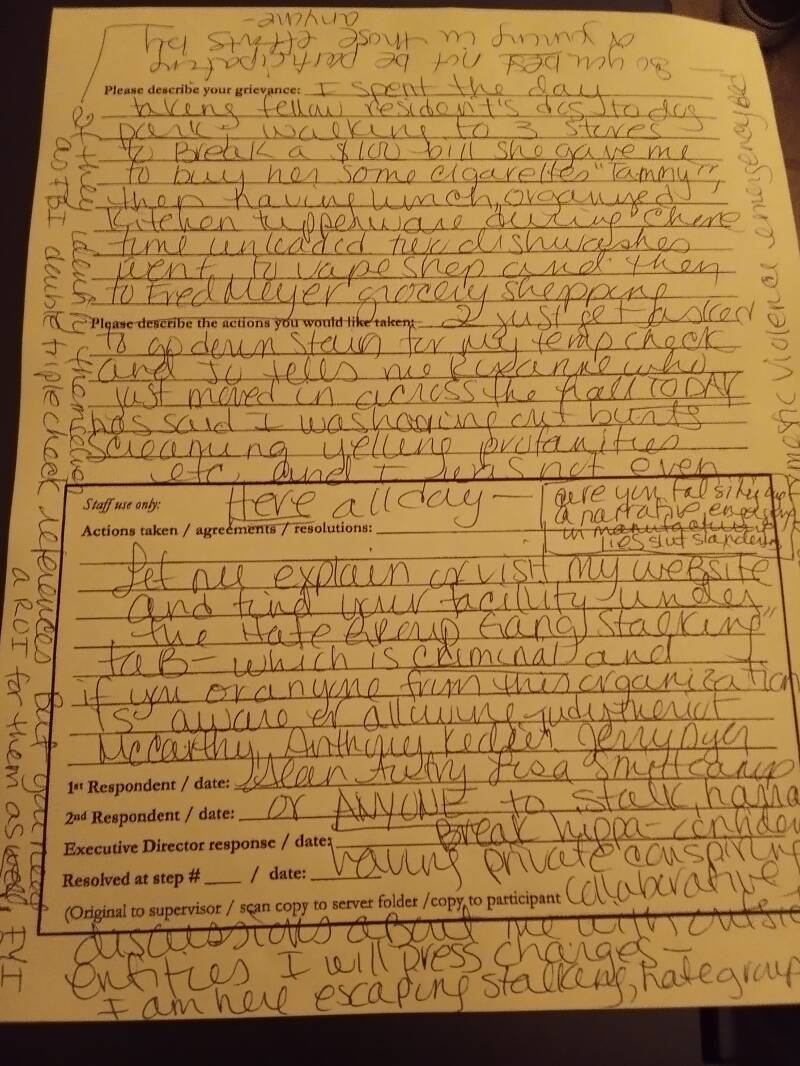 So you BEST not be participating
or joining in those efforts by
anyone -
Please describe your grievance: I spent the day
taking fellow resident's dogs to dog
park - walking to 3 stores
to Break a $100 bill she gave me
to buy her some cigarettes "Tammy",
then having lunch, organized
kitchen tupperware during chore
time unloaded two dishwashes
went to vape shop and then
to Fred Meyer grocery shopping
Please describe the actions you would like taken: I just get asked
to go down stairs for my temp check
and Jo tells me who
just moved in across the hall TODAY
has said I was having out bursts
screaming yelling profanities
etc. and I was not even
Staff use only: Here all day -
Actions taken / agreements / resolutions:
are you falsifying
a narrative, engaging
in
lies slut slandering
Let me explain or visit my website
and find your facility under
the Hate Group Gang Stalking"
taB - which is criminal and
if you or anyone from this organization
is aware or allowing
McCarthy, Anthony Jerry Dyer
1st Respondent / date: Alan Autry Lisa Smittcamp
2nd Respondent / date: or ANYONE to stalk, harra
Executive Director response / date: Break hippa - confiden
Resolved at step # / date: having private conspiring
(Original to supervisor / scan copy to server folder / copy to participant Collaborative,
discussions about me with outside
entities I will press charges -
I am here escaping stalking, hate group
domestic violence emergency bed
If they identify themselves
as FBI double triple check references But you need
a ROI for them as well, FYI